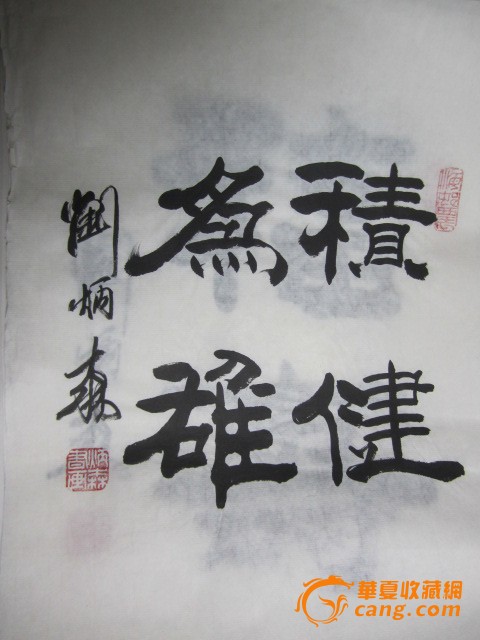 積健
為雄
劉炳森
炳森書画
華夏收藏網
cang.com